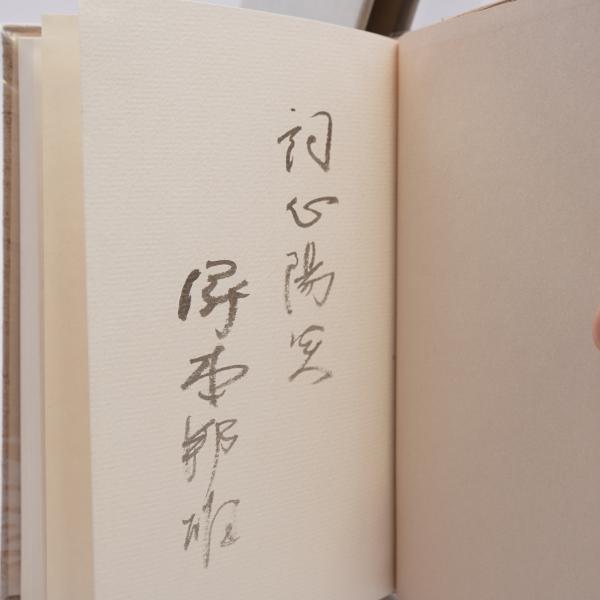 詞心陽炎
塚本邦雄